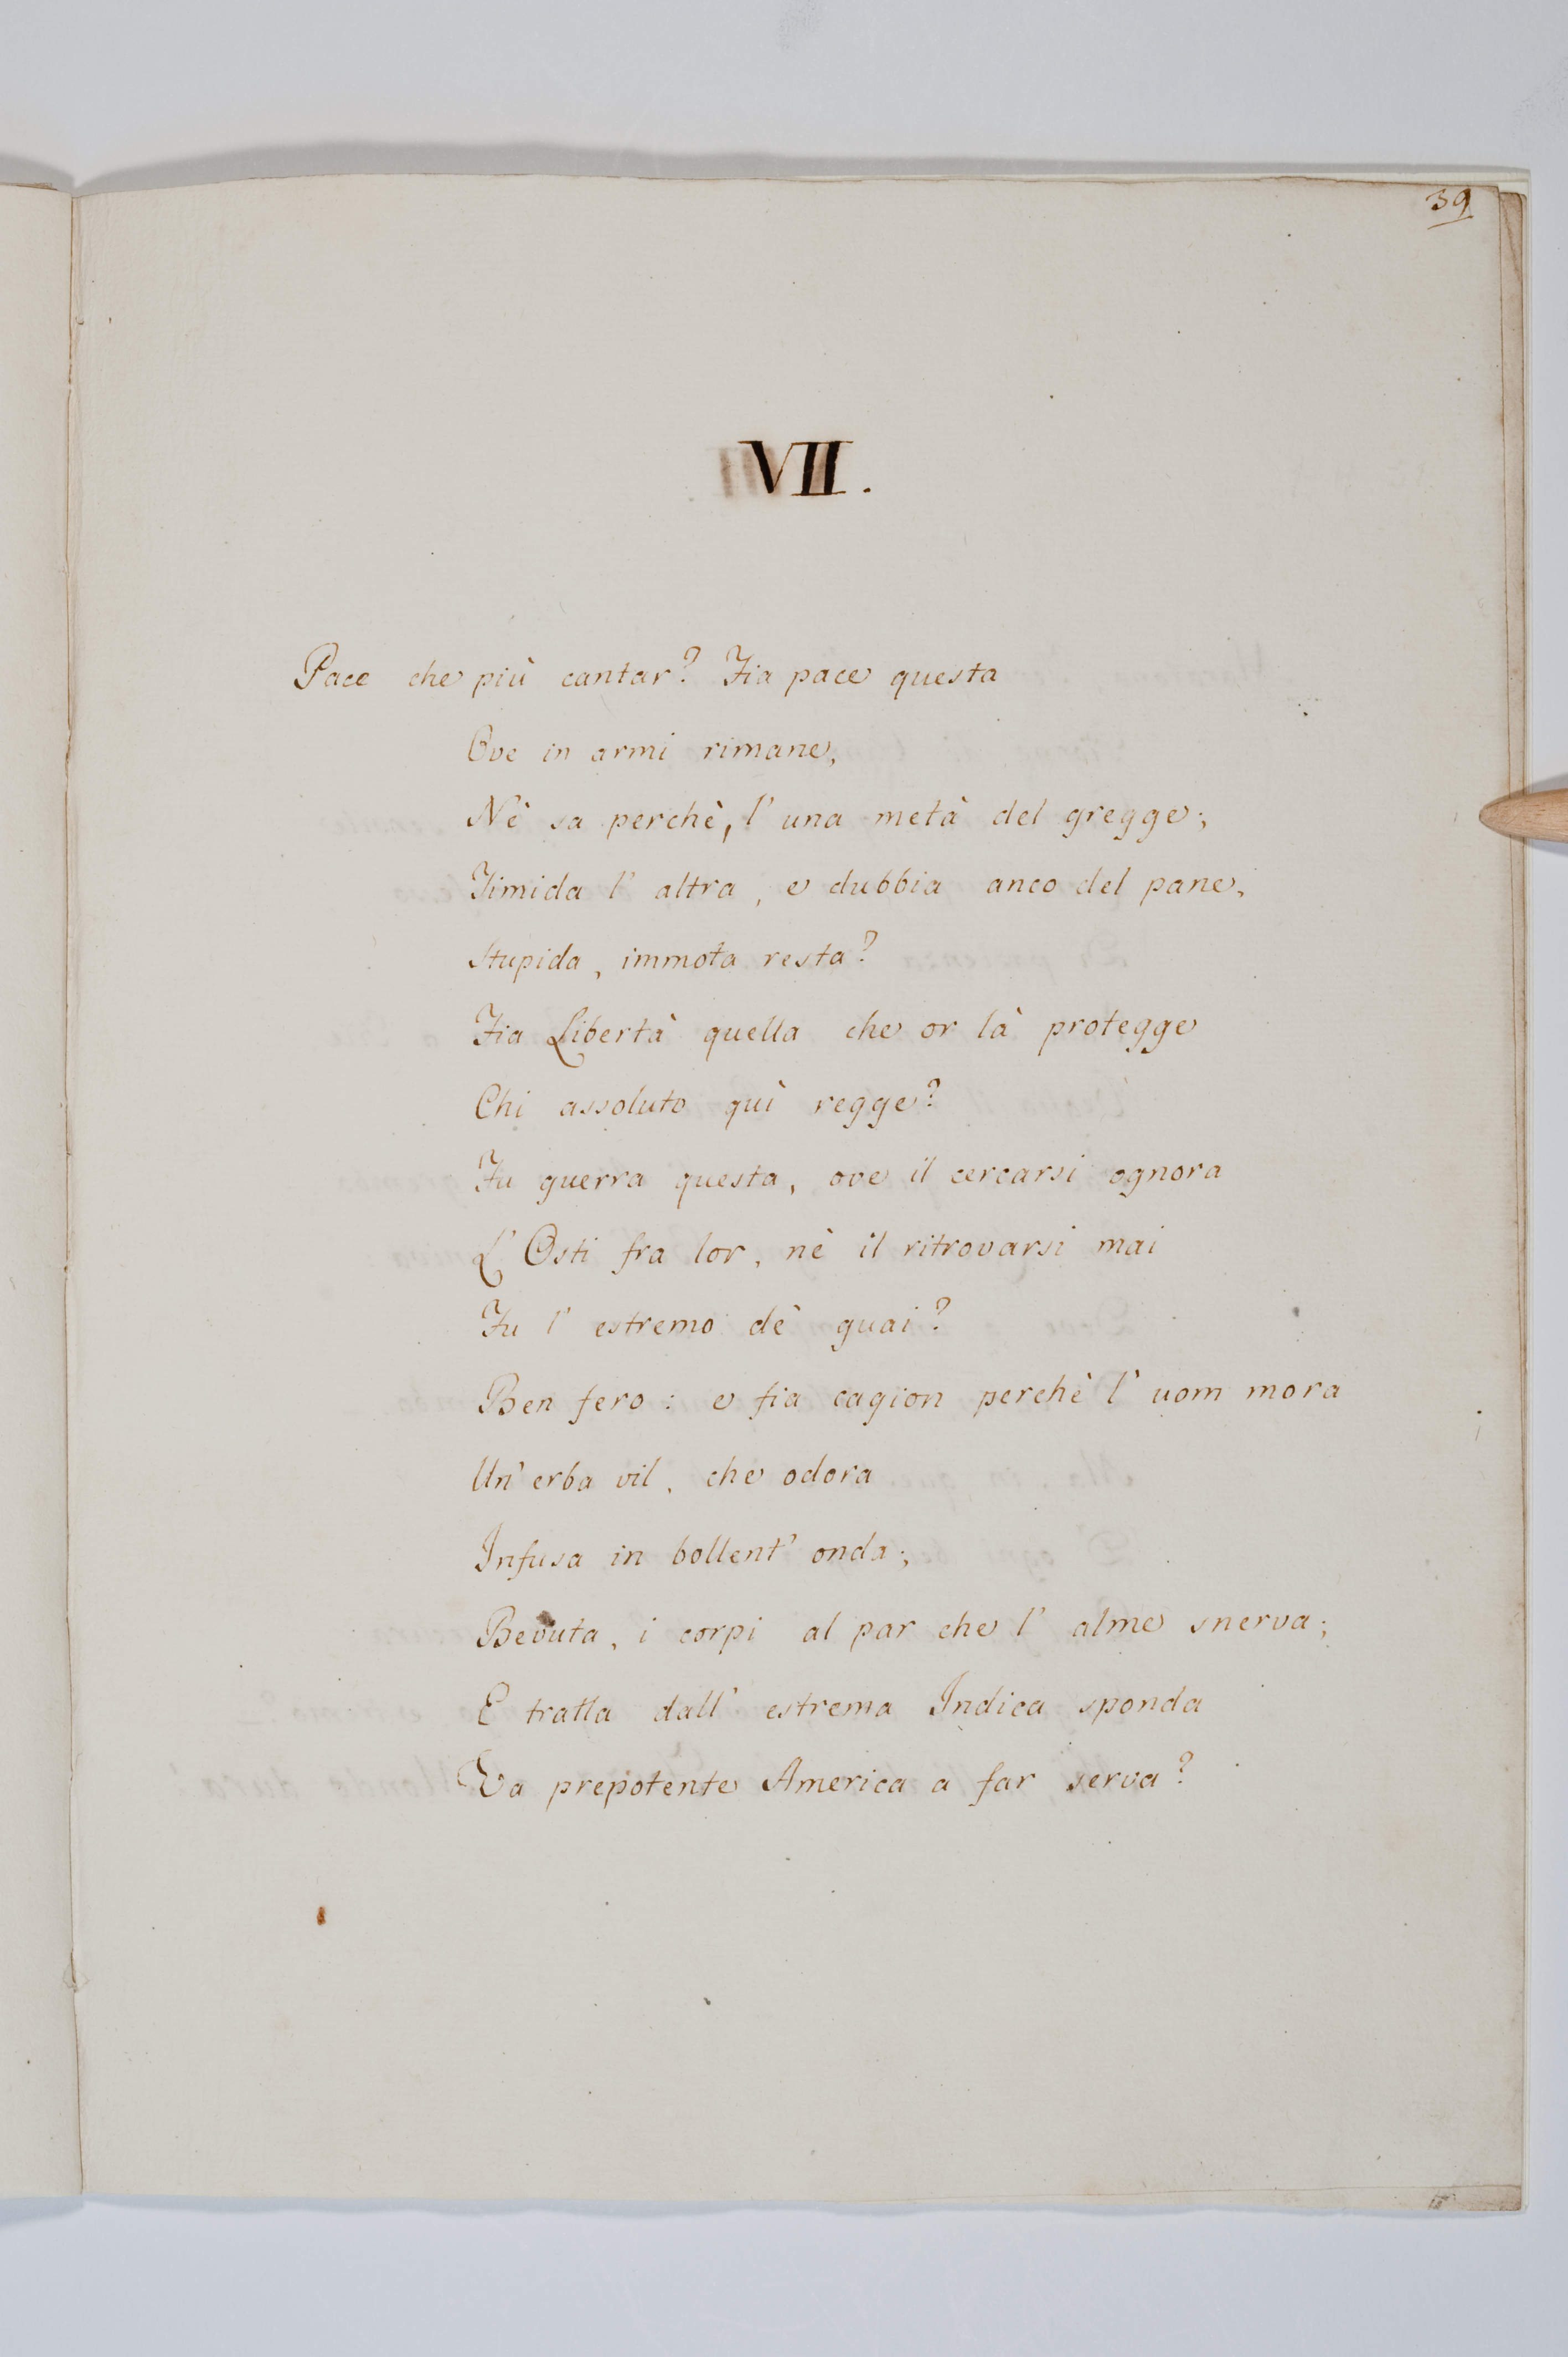 39
VII.
Pace che più cantar? Fia pace questa
Ove in armi rimane,
Nè sa perchè, l' una metà del gregge;
Timida l' altra, e dubbia anco del pane,
Stupida, immota resta?
Fia Libertà quella che or là protegge
Chi assoluto quì regge?
Fu guerra questa, ove il cercarsi ognora
L' Osti fra lor, nè il ritrovarsi mai
Fu l' estremo dè guai?
Ben fero: e fia cagion perchè l' uom mora
Un' erba vil, che odora
Infusa in bollent' onda;
Bevuta, i corpi al par che l' alme snerva;
E tratta dall' estrema Indica sponda
Va prepotente America a far serva?